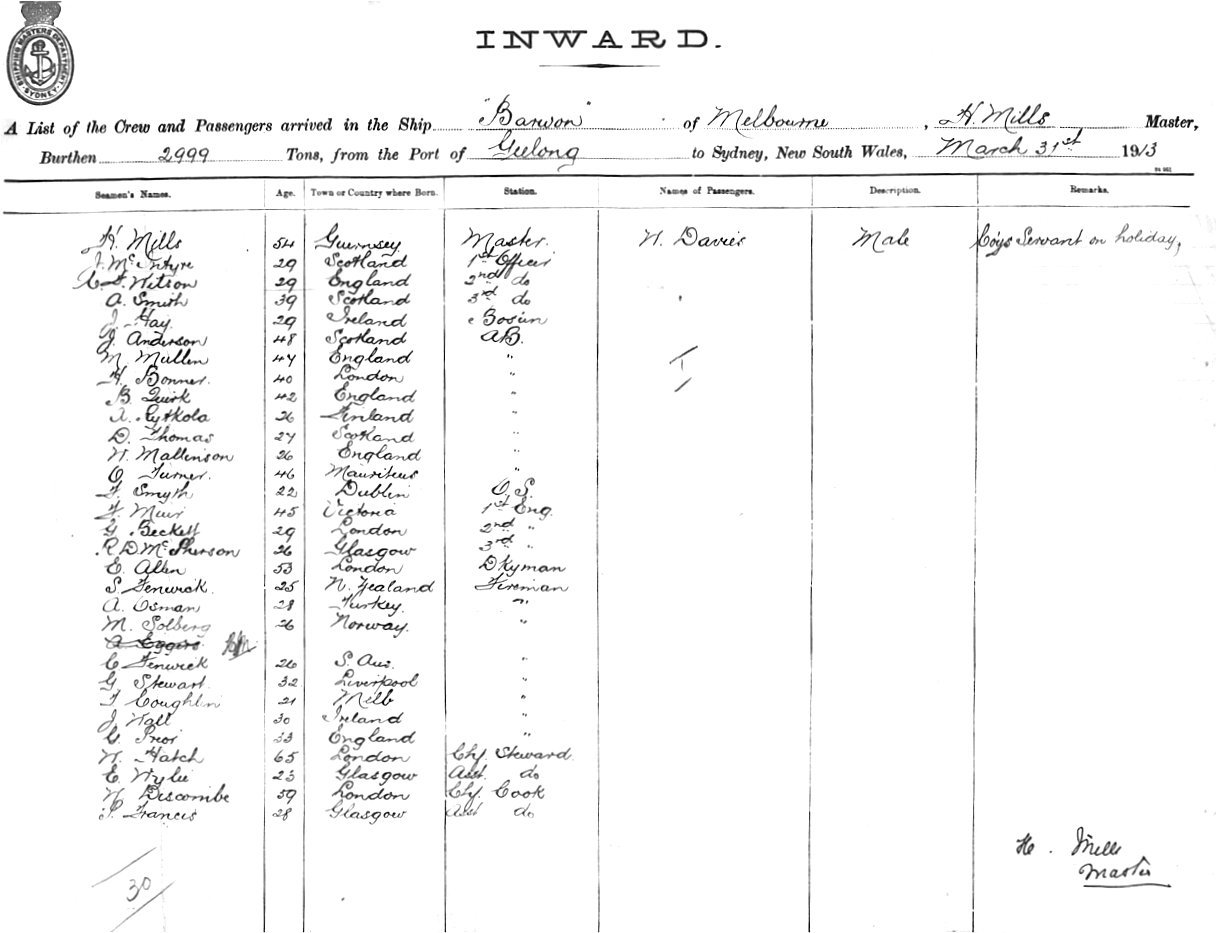 SHIPPING MASTERS DEPARTMENT. SYDNEY.
INWARD.
A List of the Crew and Passengers arrived in the Ship "Barwon" of Melbourne, H. Mills Master,
Burthen 2999 Tons, from the Port of Geelong to Sydney, New South Wales, March 31st 1913
Seamen's Names. Age. Town or Country where Born. Station. Names of Passengers. Description. Remarks.
H. Mills 54 Guernsey Master. W. Davies Male Coys Servant on holiday,
J. McIntyre 29 Scotland 1st Officer
Wilson 29 England 2nd do
A. Smith 39 Scotland 3rd do
J. Hay. 29 Ireland Bosun
J. Anderson 48 Scotland AB.
M. Mullen 47 England "
H. Bonner. 40 London "
B. Quirk 42 England "
A. Rytkola 26 Finland "
D. Thomas 27 Scotland "
W. Mallinson 26 England "
O. Turner. 46 Mauritius "
F. Smyth 22 Dublin O.S.
F. Muir 45 Victoria 1st Eng.
G. Beckett 29 London 2nd "
R. D. McPherson 26 Glasgow 3rd "
E. Allen 53 London Dkyman
S. Fenwick. 25 N. Zealand Fireman
A. Osman 28 Turkey. "
M. Solberg 26 Norway. "
A Eggers
C. Fenwick 26 S. Aus. "
G. Stewart. 32 Liverpool "
T Coughlin 21 Melb "
J. Wall 30 Ireland "
G. Prior 33 England "
W. Hatch 65 London Chf. Steward
E. Wylie 23 Glasgow Asst. do
W Discombe 59 London Chf. Cook
P. Francis 28 Glasgow Asst do
H. Mills
Master
30